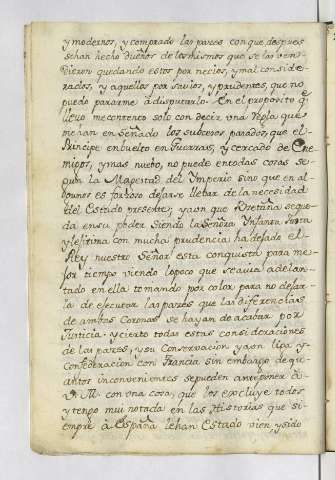 y modernos, y comprado las pazes con que despues
sehan hecho dueños de los mismos que se las ven-
dieron quedando estos por necios, y mal conside-
rados, y aquellos por savios, y prudentes, que no
puedo pararme à disputarlo. En el proposito q̃
llevo me contento solo con decir una regla que
me han enseñado los subcesos pasados, que el
Principe enbuelto en Guerras, y cercado de ene-
migos, y mas nuebo, no puede entodas cosas se-
guir la Magestad del Imperio sino que en al-
gunos es forzoso dejarse llebar de la necesidad
del Estado presente; y aun que Bretaña que-
da en su poder siendo la Señora Ynfanta
y lexitima con mucha prudencia ha dejado el
Rey nuestro Señor esta conquista para me-
jor tiempo viendo lo poco que se avia adelan-
tado en ella tomando por color para no dejar-
la de executar las pazes que las diferencias
de ambas Coronas se hayan de acabar por
Justicia. y cierto todas estas consideraciones
de las pazes, y su Conservacion y aun liga y
Confederacion con Francia sin embargo de qu-
antos inconvenientes se pueden anteponer à
V. M. con una cosa, que los excluye todos
y tengo mui notada en las Historias que si-
empre à España lehan Estado vien, y sido